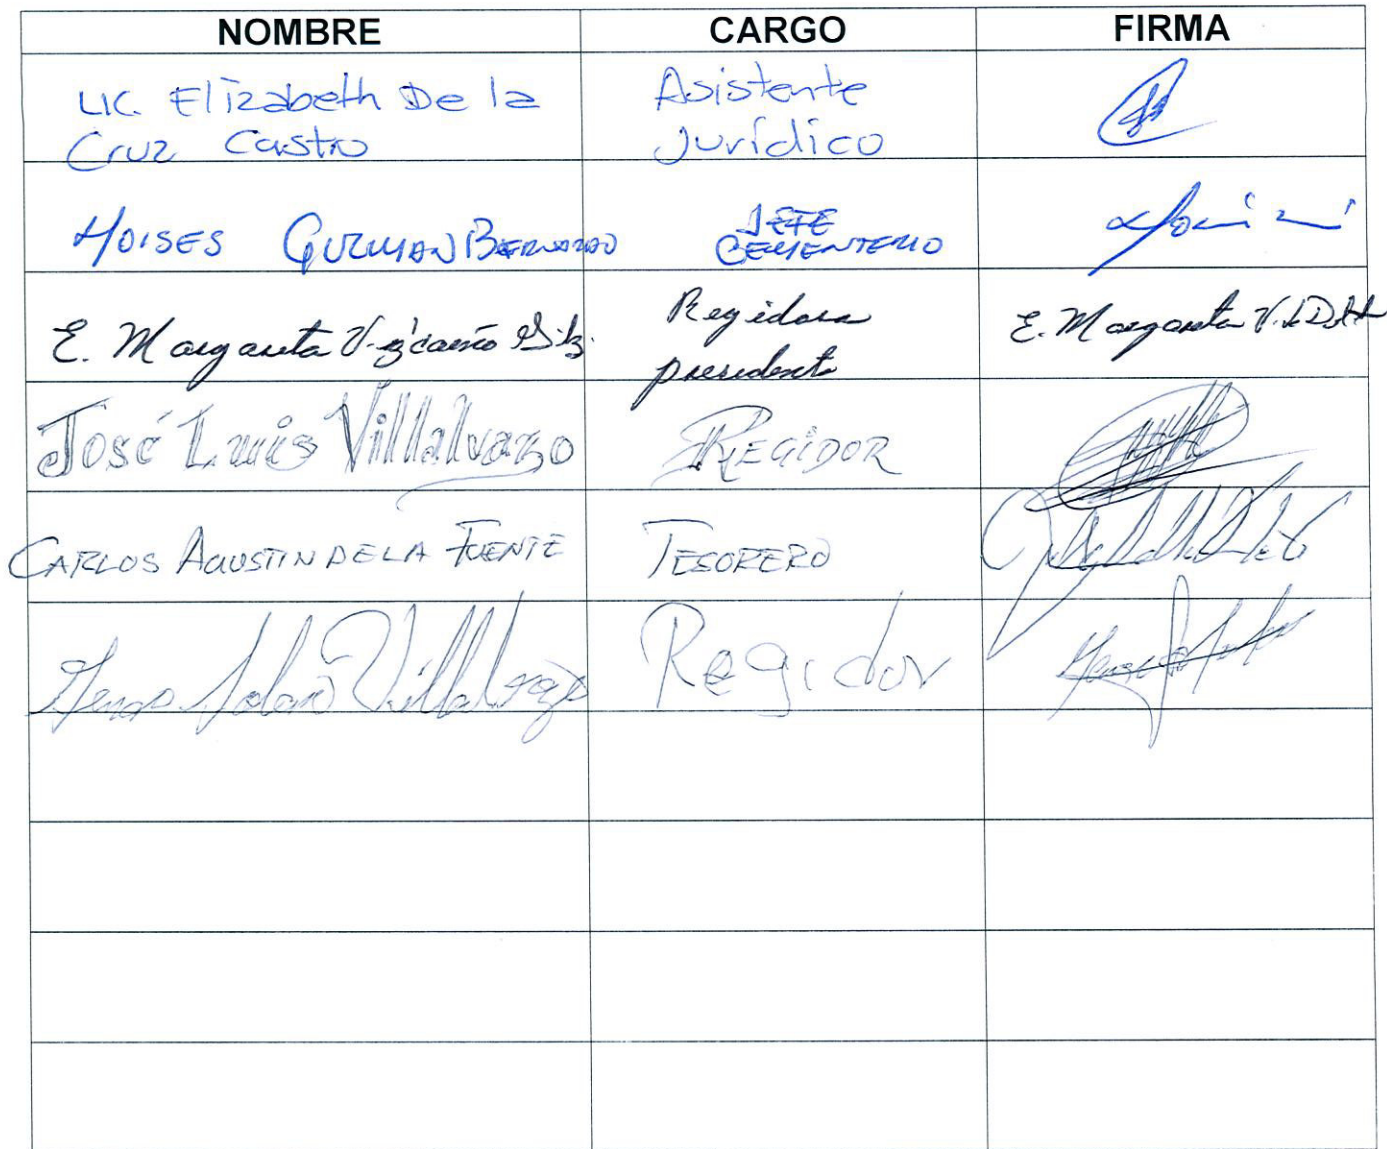 NOMBRE CARGO FIRMA
LIC. Elizabeth De la
Cruz Castro
Asistente
Jurídico
MOISES GUZMAN BERNARDO
JEFE
CEMENTERIO
E. Margarita
Regidora
presidenta
E. Margarita V.
José Luis Villalvazo
REGIDOR
CARLOS AGUSTIN DE LA FUENTE
TESORERO
Solano Villalvazo
Regidor